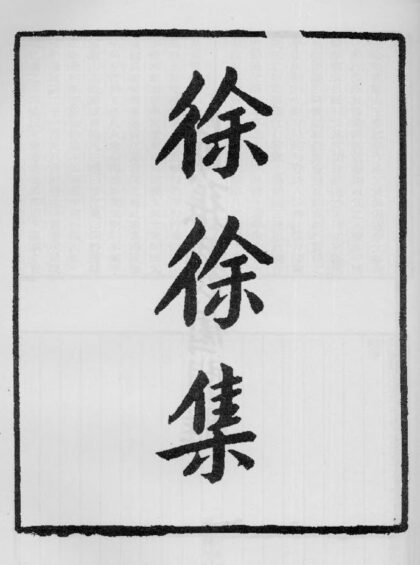 徐徐集